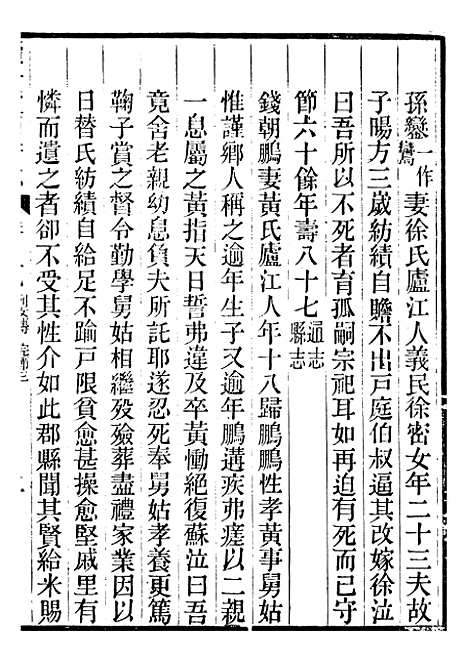 孫鑾一作鸞妻徐氏廬江人義民徐密女年二十三夫故
子暘方三歲紡績自贍不出戸庭伯叔逼其改嫁徐泣
曰吾所以不死者育孤嗣宗祀耳如再迫有死而已守
節六十餘年壽八十七通志縣志
錢朝鵬妻黃氏廬江人年十八歸鵬鵬性孝黃事舅姑
惟謹鄉人稱之逾年生子又逾年鵬遘疾弗瘥以二親
一息屬之黃指天日誓弗違及卒黃慟絕復蘇泣曰吾
竟舍老親幼息負夫所託耶遂忍死奉舅姑孝養更篤
鞠子賞之督令勤學舅姑相繼歿殮葬盡禮家業因以
日替氏紡績自給足不踰戸限貧愈甚操愈堅戚里有
憐而遺之者卻不受其性介如此郡縣聞其賢給米賜
列女傳